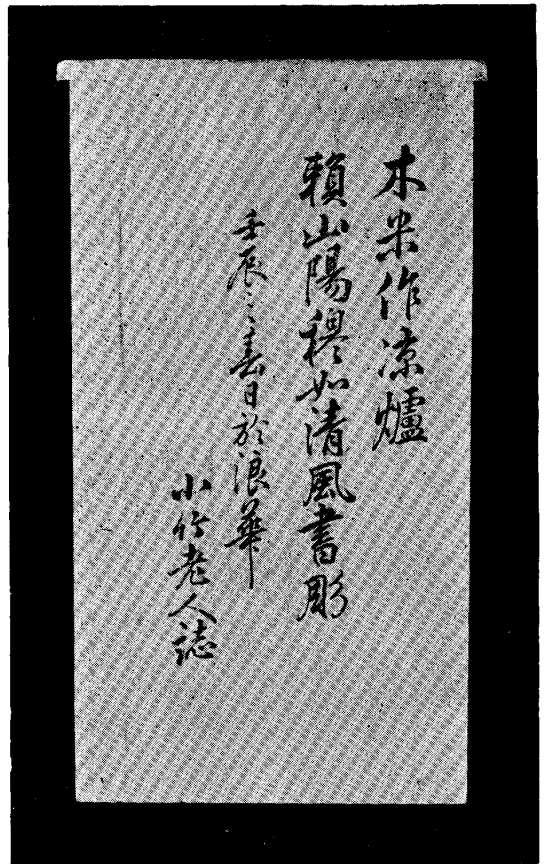 木米作凉爐
頼山陽穆如清風書彫
壬辰之春日於浪華
小竹老人誌